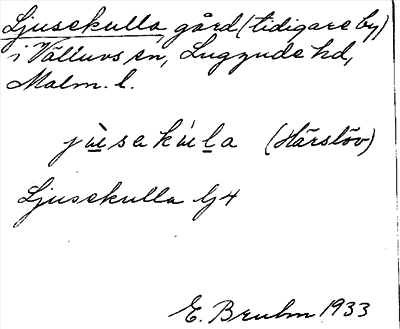 Ljusekulla, gård (tidigare by)
i Välluvs sn, Luggude hd,
Malm. l.
jùsakùla (Härslöv)
Ljusekulla bj 4
E. Bruhn 1933